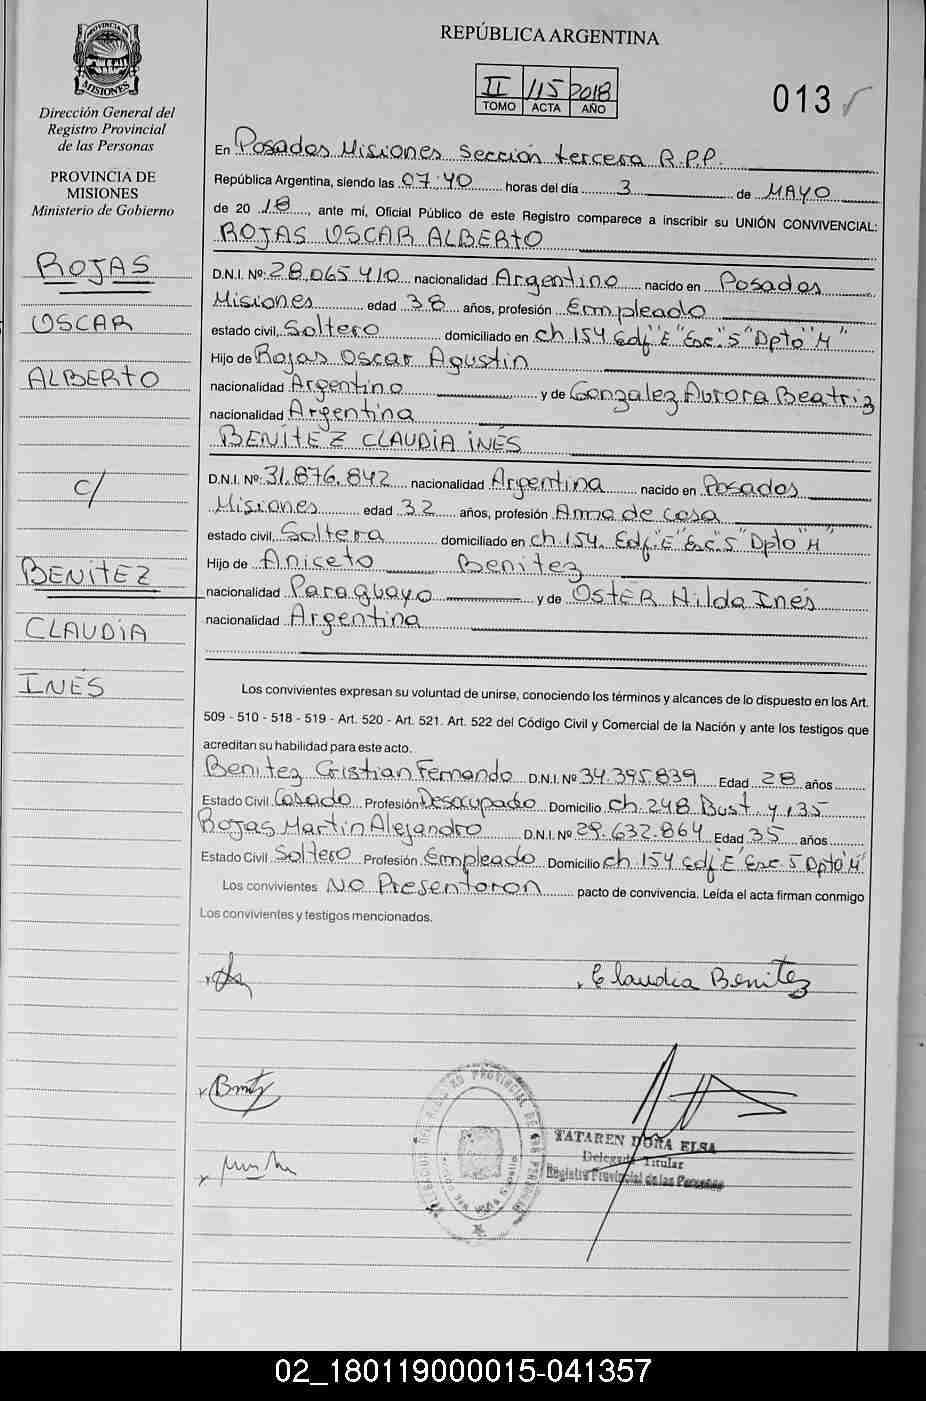 REPÚBLICA ARGENTINA
PROVINCIA DE MISIONES
Dirección General del
Registro Provincial
de las Personas
PROVINCIA DE
MISIONES
Ministerio de Gobierno
II 115 2018
TOMO ACTA AÑO
013
ROJAS
OSCAR
ALBERTO
c/
BENITEZ
CLAUDIA
INÉS
En Posadas Misiones Sección tercera R.P.P.
República Argentina, siendo las 07:40 horas del día 3 de MAYO
de 20 18, ante mí, Oficial Público de este Registro comparece a inscribir su UNIÓN CONVIVENCIAL:
ROJAS OSCAR ALBERTO
D.N.I. Nº: 28.065.410 nacionalidad Argentino nacido en Posadas
Misiones edad 38 años, profesión Empleado
estado civil, Soltero domiciliado en ch 154 Edf "E" Esc. "5" Dpto "H"
Hijo de Rojas Oscar Agustin
nacionalidad Argentino y de Gonzalez Aurora Beatriz
nacionalidad Argentina
BENÍTEZ CLAUDIA INÉS
D.N.I. Nº: 31.876.842 nacionalidad Argentina nacido en Posadas
Misiones edad 32 años, profesión Ama de casa
estado civil, Soltera domiciliado en ch 154. Edf. "E" Esc. "5" Dpto "H"
Hijo de Aniceto Benitez
nacionalidad Paraguayo y de OSTER Hilda Inés
nacionalidad Argentina
Los convivientes expresan su voluntad de unirse, conociendo los términos y alcances de lo dispuesto en los Art.
509 - 510 - 518 - 519 - Art. 520 - Art. 521. Art. 522 del Código Civil y Comercial de la Nación y ante los testigos que
acreditan su habilidad para este acto.
Benitez Cristian Fernando D.N.I. Nº 34.395.839 Edad 28 años
Estado Civil Casado Profesión Desocupado Domicilio ch. 248 Bust. y 135
Rojas Martin Alejandro D.N.I. Nº 29.632.864 Edad 35 años
Estado Civil Soltero Profesión Empleado Domicilio ch. 154 Edf "E" Esc. 5 Dpto "H"
Los convivientes NO Presentaron pacto de convivencia. Leída el acta firman conmigo
Los convivientes y testigos mencionados.
Claudia Benitez
TATAREN DORA ELSA
Delegada Titular
Registro Provincial de las Personas
02_180119000015-041357